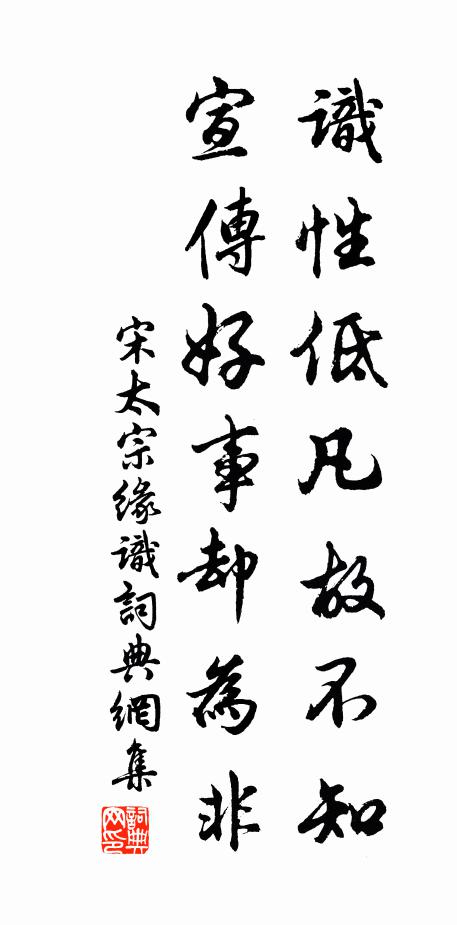 識性低凡故不知
宣傳好事却為非
宋太宗緣識詞典網集
詞典网印